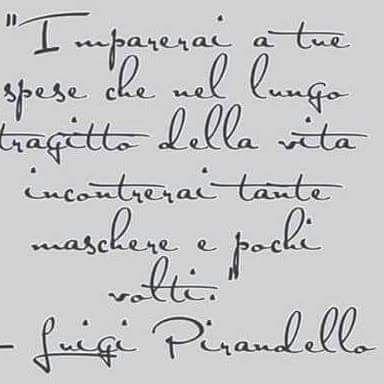 "Imparerai a tue
spese che nel lungo
tragitto della vita
incontrerai tante
maschere e pochi
volti."
- Luigi Pirandello